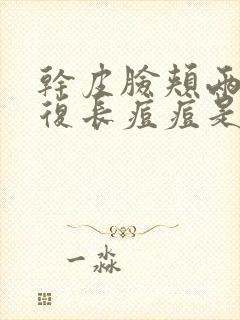 幹皮臉頰兩
復長痘痘是
一淼